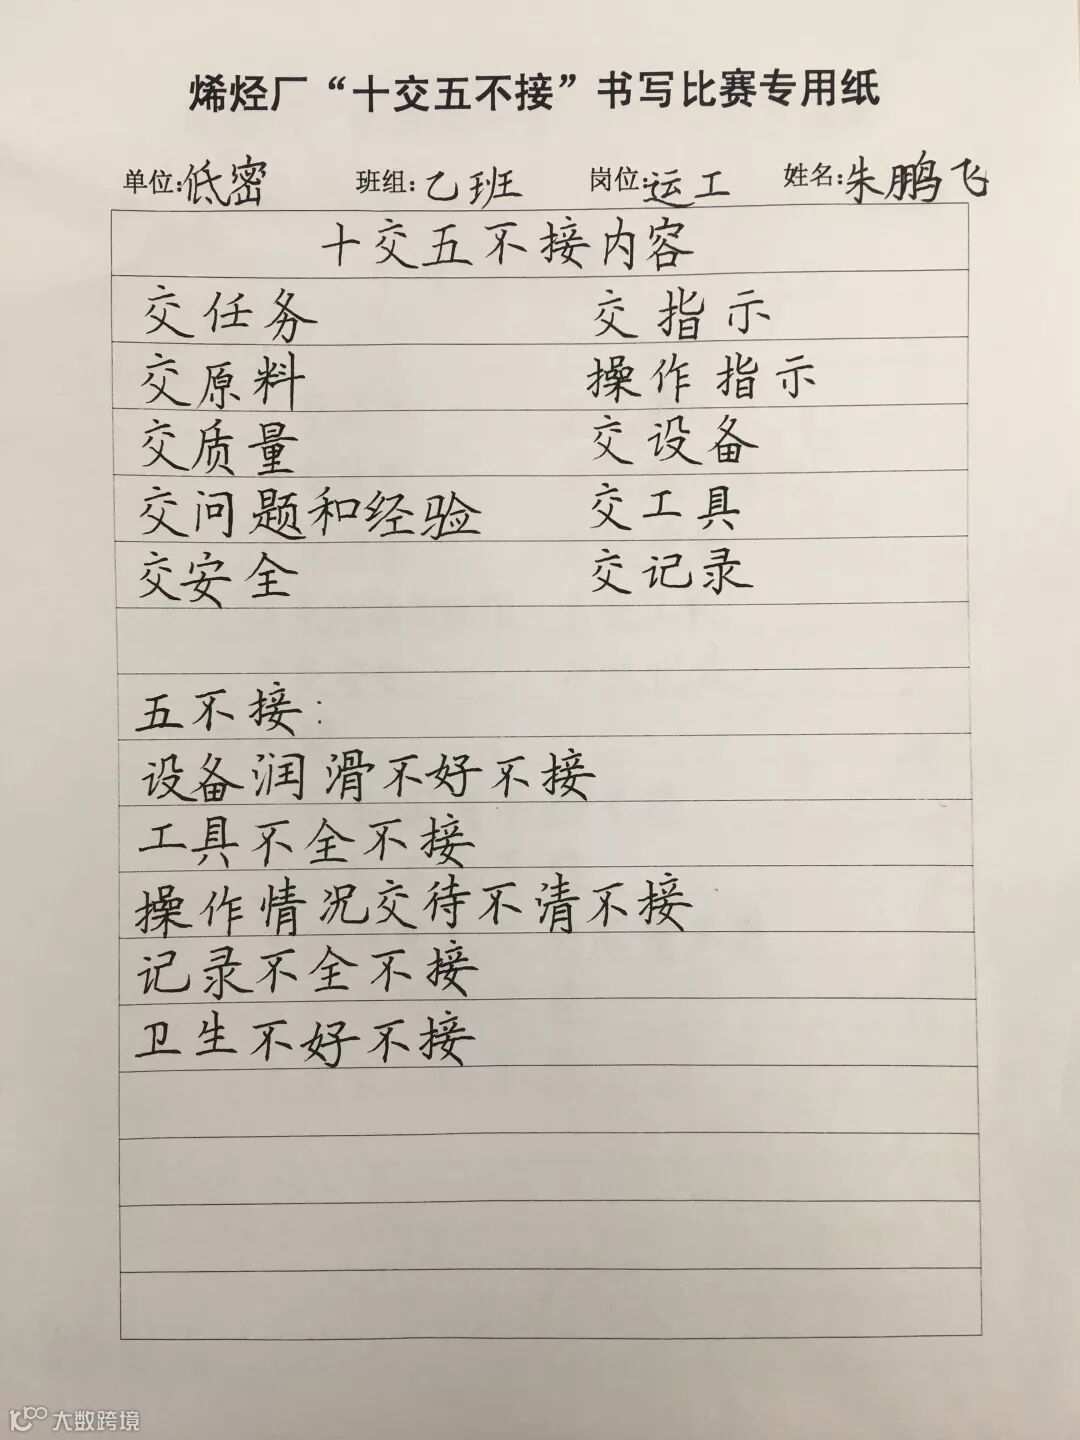 烯烃厂“十交五不接”书写比赛专用纸
单位:低密 班组:乙班 岗位:运工 姓名:朱鹏飞
十交五不接内容
交任务 交指示
交原料 操作指示
交质量 交设备
交问题和经验 交工具
交安全 交记录
五不接:
设备润滑不好不接
工具不全不接
操作情况交待不清不接
记录不全不接
卫生不好不接
大数跨境